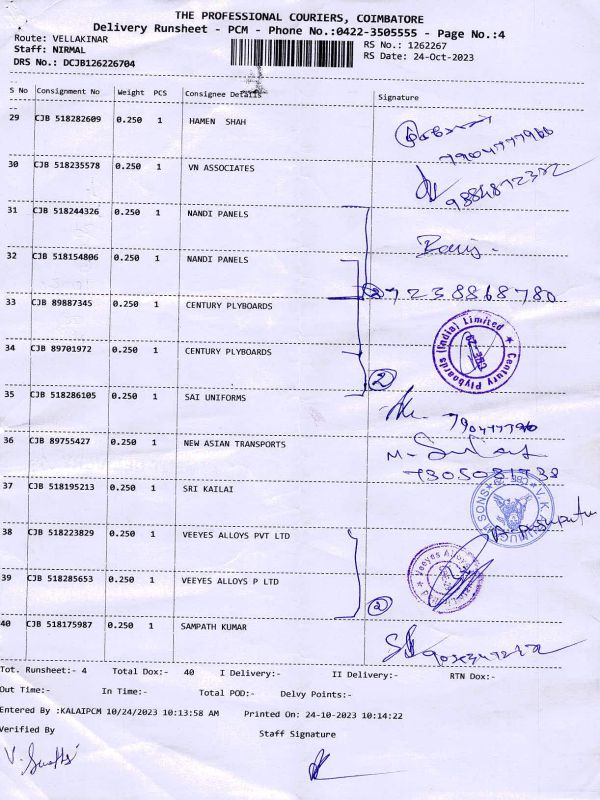 THE PROFESSIONAL COURIERS, COIMBATORE
Delivery Runsheet - PCM - Phone No.:0422-3505555 - Page No.:4
Route: VELLAKINAR
RS No.: 1262267
Staff: NIRMAL
RS Date: 24-Oct-2023
DRS No.: DCJB126226704
S No Consignment No Weight PCS Consignee Details Signature
29 CJB 518282609 0.250 1 HAMEN SHAH
30 CJB 518235578 0.250 1 VN ASSOCIATES
31 CJB 518244326 0.250 1 NANDI PANELS
32 CJB 518154806 0.250 1 NANDI PANELS
7238868780
33 CJB 89887345 0.250 1 CENTURY PLYBOARDS
Century Plyboards (India) Limited
34 CJB 89701972 0.250 1 CENTURY PLYBOARDS
2
35 CJB 518286105 0.250 1 SAI UNIFORMS
36 CJB 89755427 0.250 1 NEW ASIAN TRANSPORTS
37 CJB 518195213 0.250 1 SRI KAILAI
38 CJB 518223829 0.250 1 VEEYES ALLOYS PVT LTD
39 CJB 518285653 0.250 1 VEEYES ALLOYS P LTD
2
40 CJB 518175987 0.250 1 SAMPATH KUMAR
Tot. Runsheet:- 4 Total Dox:- 40 I Delivery:- II Delivery:- RTN Dox:-
Out Time:- In Time:- Total POD:- Delvy Points:-
Entered By :KALAIPCM 10/24/2023 10:13:58 AM Printed On: 24-10-2023 10:14:22
Verified By Staff Signature